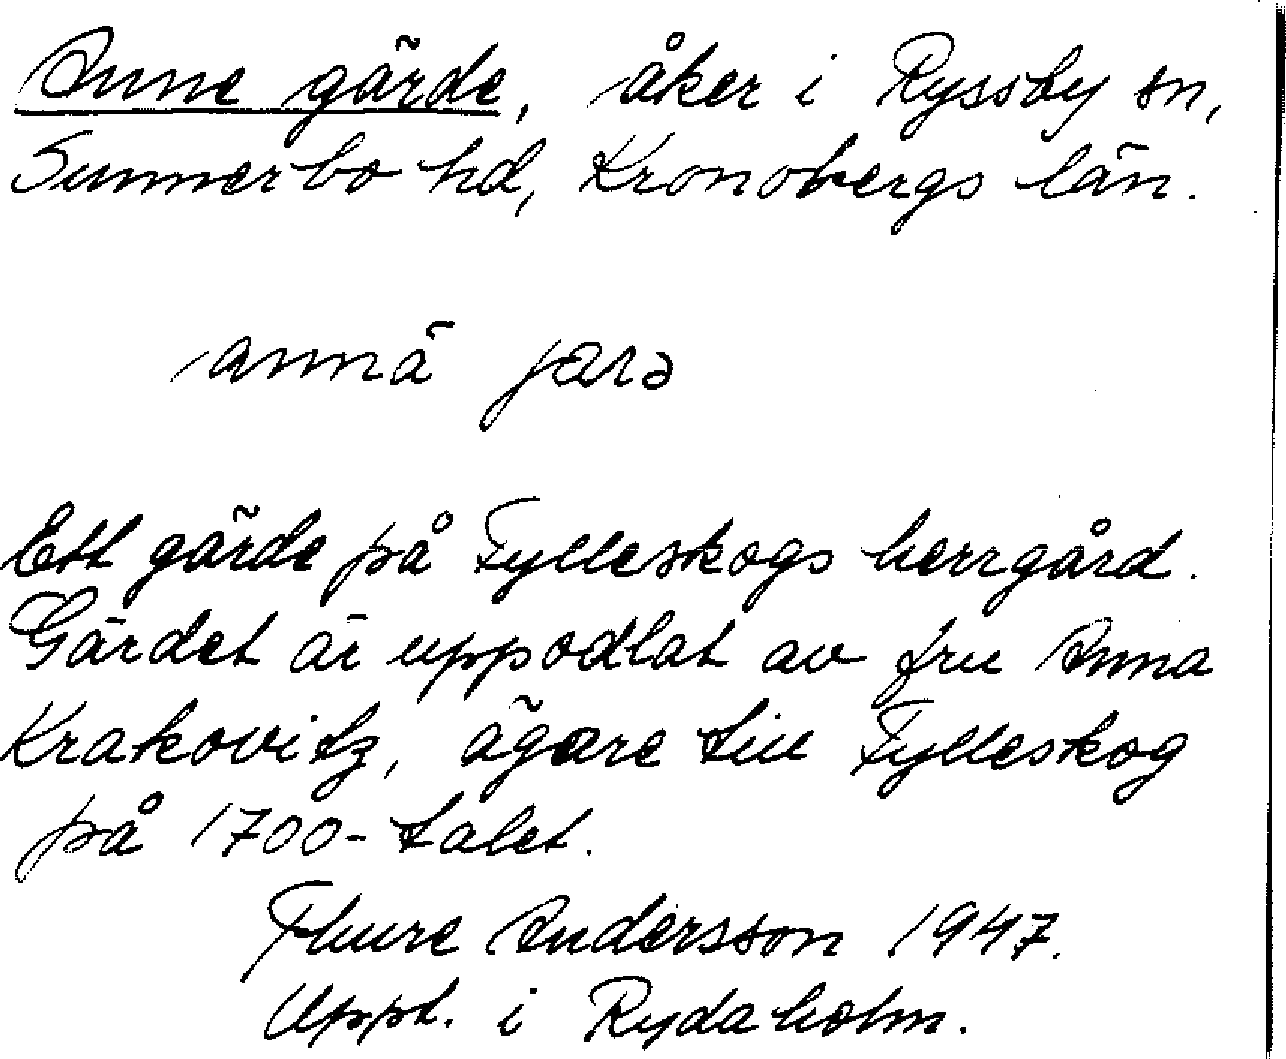 Anne gärde, åker i Ryssby sn,
Sunnerbo hd, Kronobergs län.
annä jærə
Ett gärde på Fylleskogs herrgård.
Gärdet är uppodlat av fru Anna
Krakovitz, ägare till Fylleskog
på 1700-talet.
Thure Andersson 1947.
Uppt. i Rydaholm.